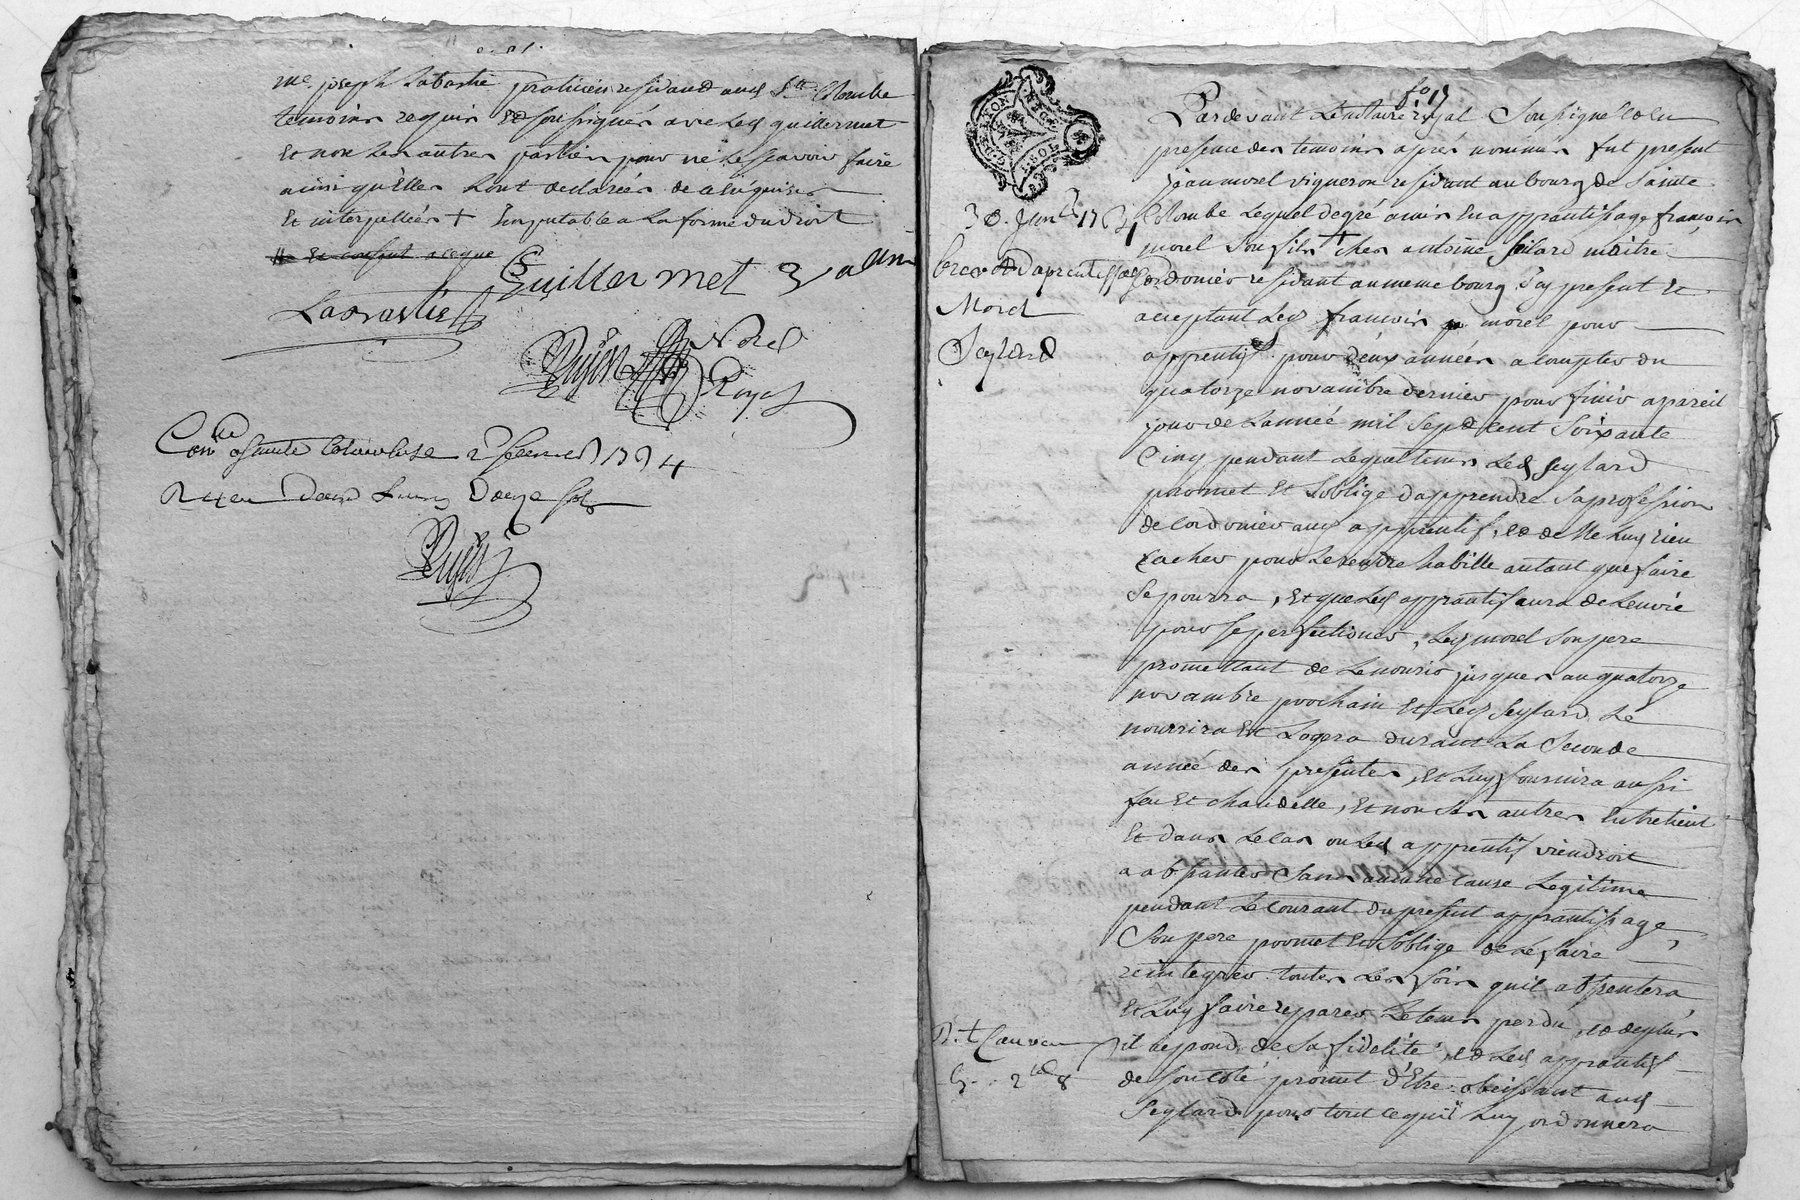 me. joseph Labastie praticien residand aud Ste. Colombe
temoins requis et soussignés avec led guillermet
et non les autres parties pour ne le scavoir faire
ainsi qu'elles l'ont declarées de ce enquises
et interpellées + imputable a la forme du droit
et consent a ce que
Guillermet
Labastie
Royal
Con.lle a sainte Colombe 2 fevrier 1764
Reçeu douze sols
fo 17
Pardevant Le notaire royal soussigné et en
presence des temoins aprés nommés fut present
jean morel vigneron residant au bourg de sainte
Colombe Lequel de gré a mis en apprantissage françois
morel son fils + chés antoine seilard maitre
Cordonier residant au meme bourg d'icy present et
acceptant led françois morel pour
apprentif pour deux années a compter du
quatorze novambre dernier pour finir a pareil
jour de L'année mil sept cent soixante
Cinq pendant Lequel tems led seylard
promet et s'oblige d'apprendre sa profession
de Cordonier aud apprentif, et de ne luy rien
cacher pour le rendre habille autant que faire
se pourra, et que led apprantif aura de Lenvie
pour se perfectioner, led morel son pere
promettant de le nourir jusques au quatorze
novambre prochain et led seylard le
nourrira et Logera durant La seconde
année des presentes, et luy fournira aussi
feu et chandelle, et non ses autres Entretient
et dans le cas ou led apprentif viendroit
a absanter sans aucune cause Legitime
pendant le courant du present apprantissage,
son pere promet et s'oblige de le faire
reintegrer toutes les fois qu'il absentera
et luy faire reparer le tems perdu, et de plus
il repond de sa fidelité, et led apprantif
de son coté promet d'Etre obeissant aud
Seylard pour tout ce qu'il luy ordonnera
brevet d'aprentissage
Morel
Seylard